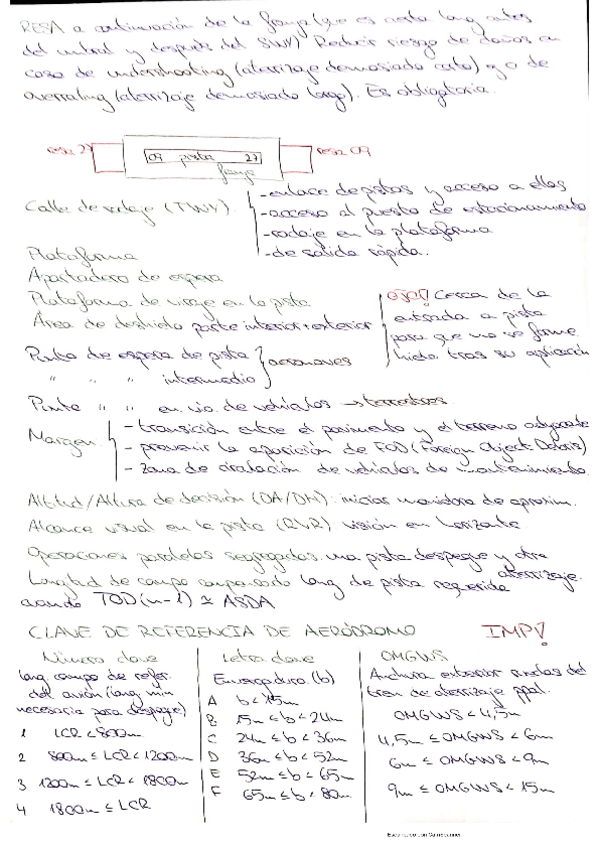 RESA a continuación de la franja (que es cierta long antes
del umbral y después del SWY) Reducir riesgo de daños en
caso de undershooting (aterrizaje demasiado corto) y/o de
overruling (aterrizaje demasiado largo). Es obligatoria.
resa 27
09 pista 27
franja
resa 09
Calle de rodaje (TWY)
- enlace de pistas y acceso a ellas
- acceso al puesto de estacionamiento
- rodaje en la plataforma
- de salida rápida.
Plataforma
Apartadero de espera
Plataforma de viraje en la pista
Área de deshielo parte interior + exterior
ojo! Cerca de la
entrada a pista
para que no se forme
hielo tras su aplicación
Punto de espera de pista
" " " intermedio
aeronaves
Punto " " en vía de vehículos → terrestres
Margen
- transición entre el pavimento y el terreno adyacente
- prevenir la aparición de FOD (Foreign Object Debris)
- zona de circulación de vehículos de mantenimiento
Altitud/Altura de decisión (DA/DH): iniciar maniobra de aproxim.
Alcance visual en la pista (RVR) visión en horizonte
Operaciones paralelas segregadas una pista despegue y otra
aterrizaje.
Longitud de campo compensado long de pista requerida
cuando TOD (n-1) ≅ ASDA
CLAVE DE REFERENCIA DE AERÓDROMO IMP!
Número clave
long campo de refer.
del avión (long mín
necesaria para despegue)
1 LCR < 800m
2 800m ≤ LCR < 1200m
3 1200m ≤ LCR < 1800m
4 1800m ≤ LCR
Letra clave
Envergadura (b)
A b < 15m
B 15m ≤ b < 24m
C 24m ≤ b < 36m
D 36m ≤ b < 52m
E 52m ≤ b < 65m
F 65m ≤ b < 80m
OMGWS
Anchura exterior ruedas del
tren de aterrizaje ppal.
OMGWS < 4,5m
4,5m ≤ OMGWS < 6m
6m ≤ OMGWS < 9m
9m ≤ OMGWS < 15m
Escaneado con CamScanner